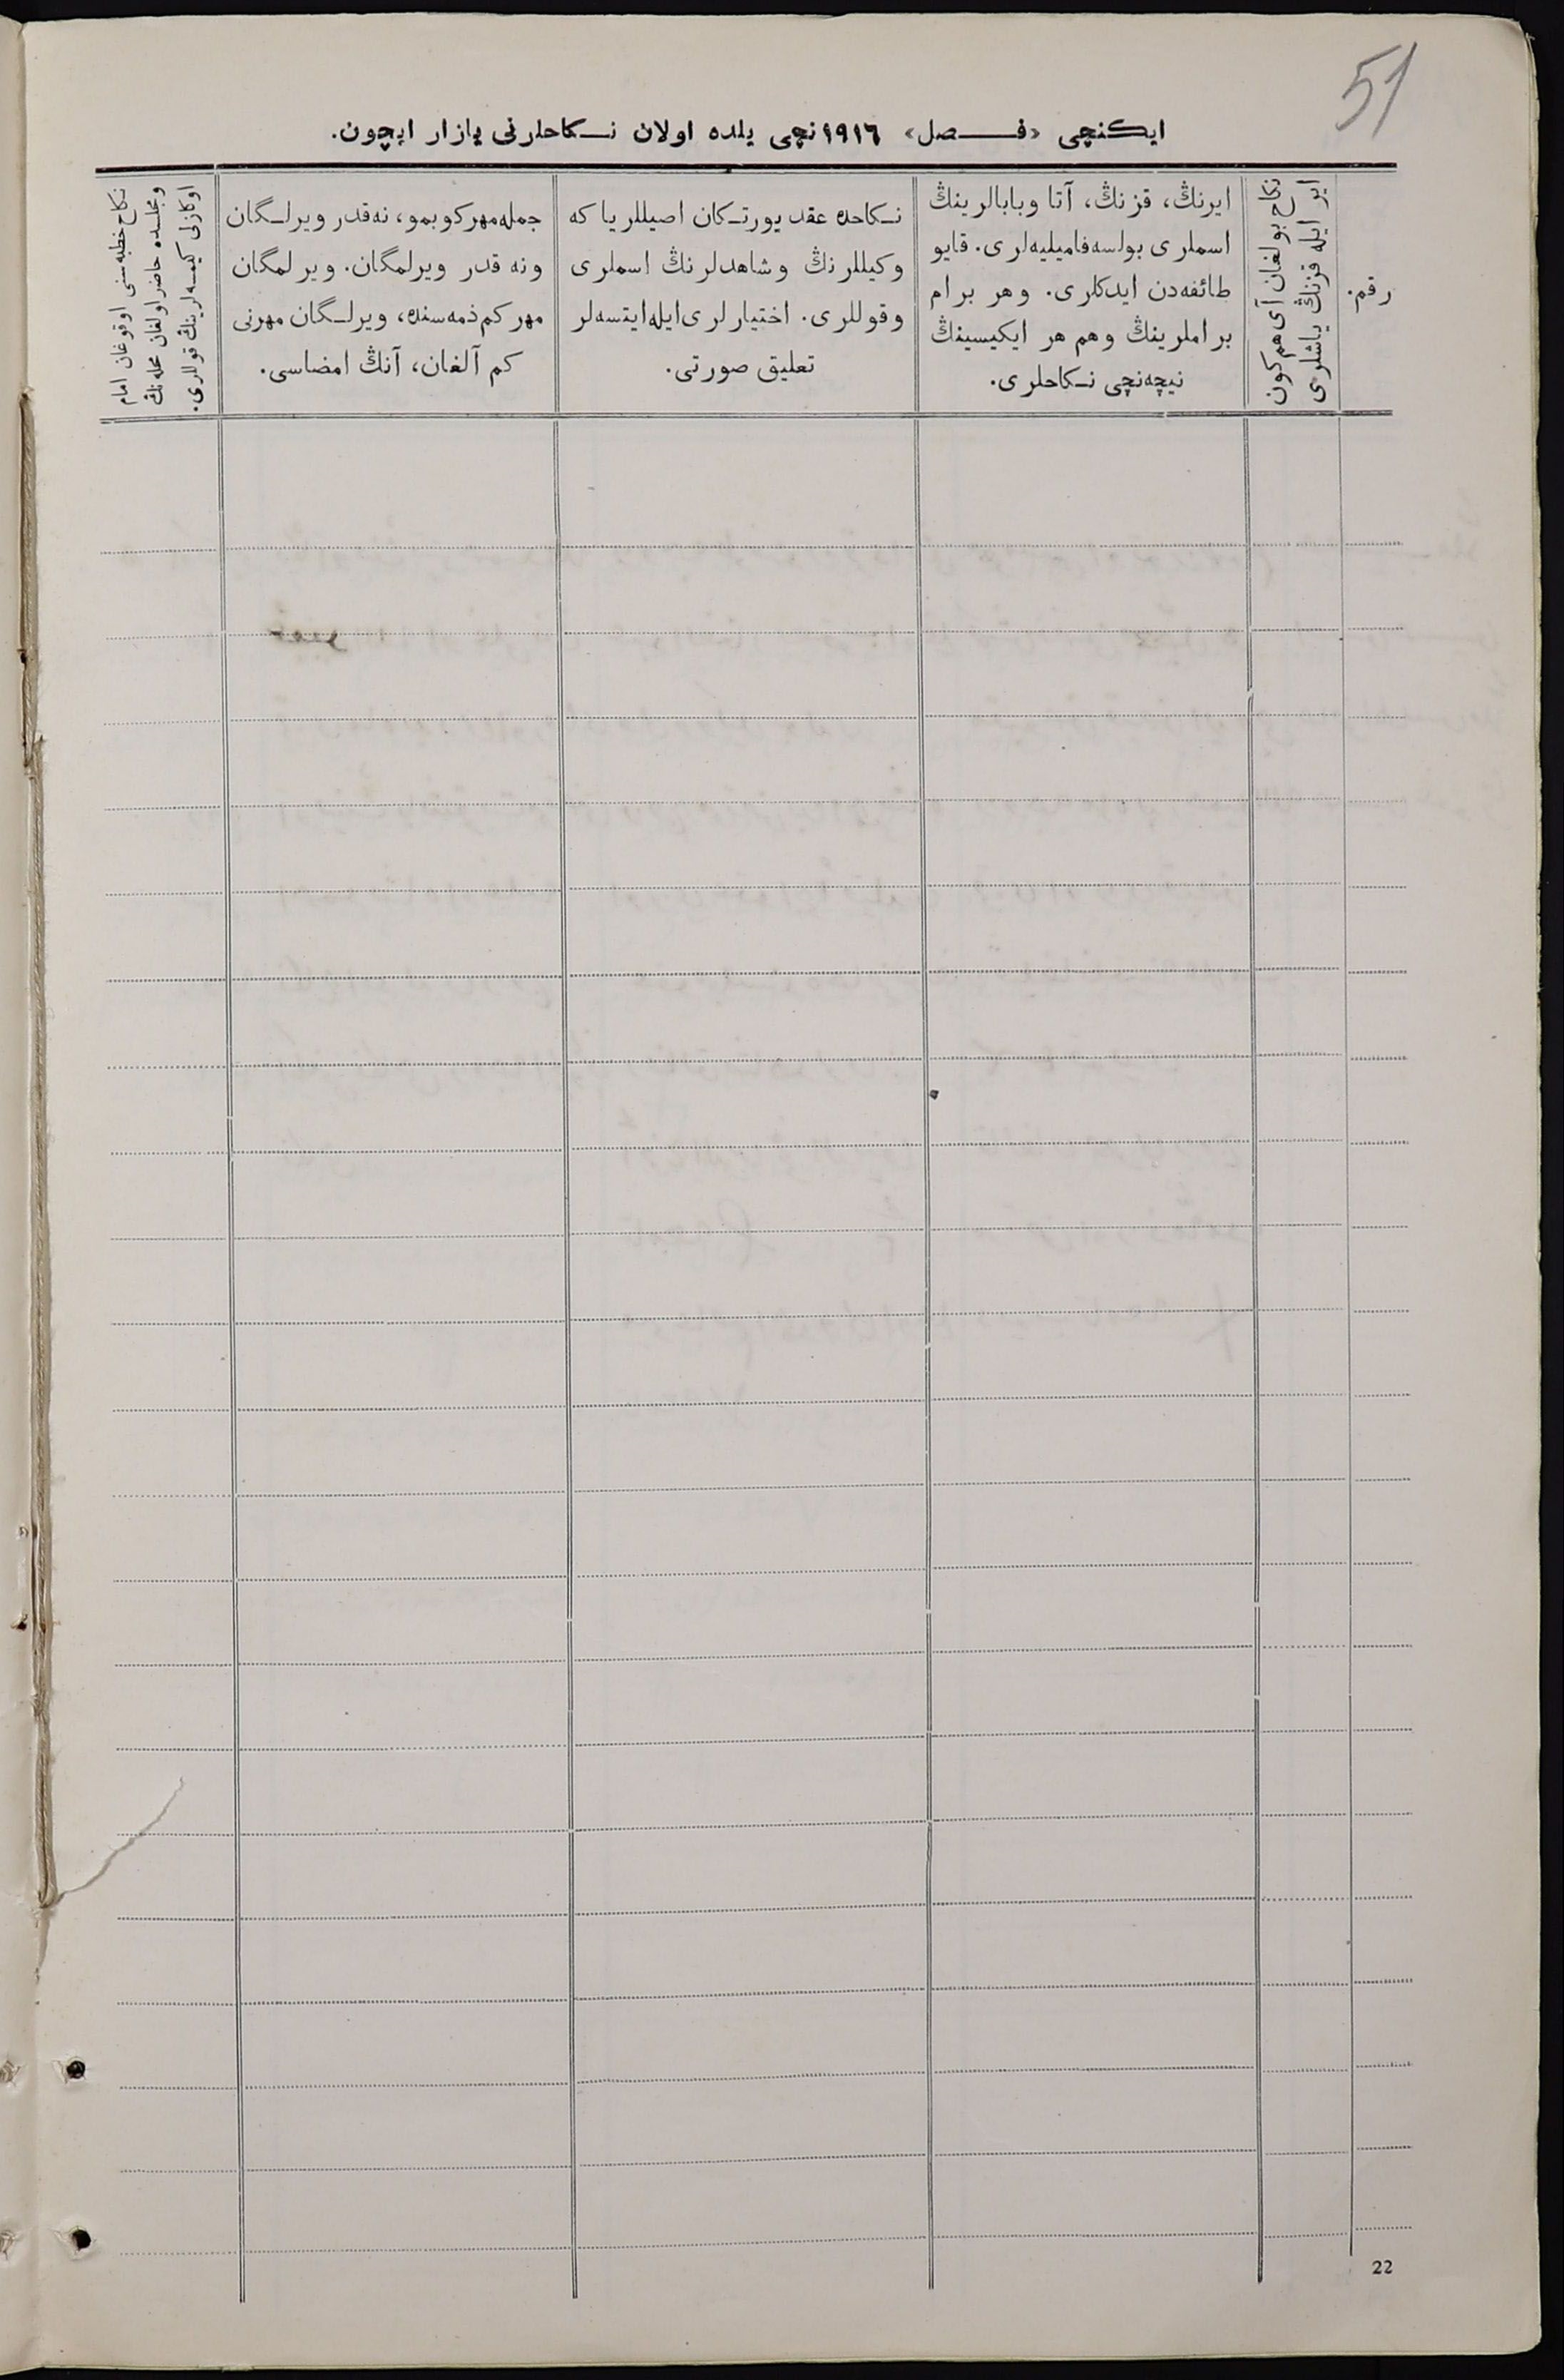 51
ایكنچی «فصل» ١٩١٦نچی یلده اولان نكاحلرنی یازار ایچون.
رقم.
نكاح بولغان آی هم كون
ایر ایله قزنڭ یاشلری
ایرنڭ، قزنڭ، آتا وبابالرینڭ
اسملری بولسه فامیلیه‌لری. قایو
طائفه‌دن ایدكلری. وهر برام
براملرینڭ وهم هر ایكیسینڭ
نیچه‌نچی نكاحلری.
نكاحده عقد یورتكان اصیللر یا كه
وكیللرنڭ وشاهدلرنڭ اسملری
وقوللری. اختیارلری ایله ایتسه‌لر
تعلیق صورتی.
جمله مهر كوبمو، نه قدر ویرلگان
ونه قدر ویرلمگان. ویرلمگان
مهر كم ذمه‌سنده، ویرلگان مهرنی
كم آلغان، آنڭ امضاسی.
نكاح خطبه‌سنی اوقوغان امام
ومجلسده حاضر اولغان محله‌نڭ
اوكازلی كیمسه‌لرینڭ قوللری.
22